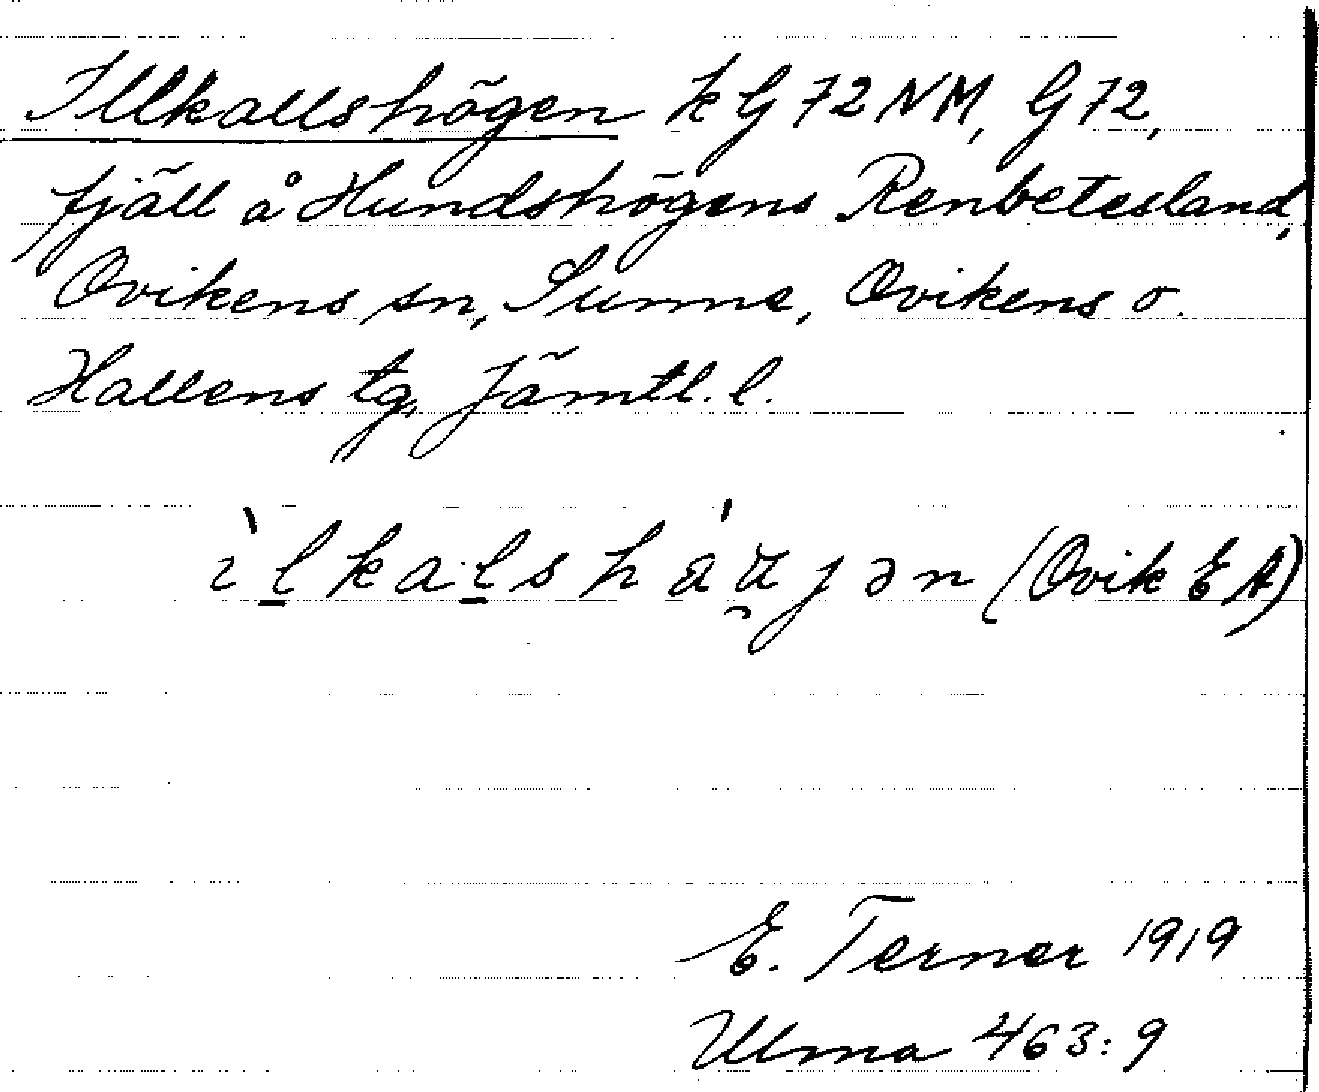 Illkallshögen k G 72 NM, G 72,
fjäll å Hundshögens Renbetesland,
Ovikens sn, Sunne, Ovikens o.
Hallens tg, Jämtl. l.
(Ovik E A)
E. Terner 1919
Ulma 463:9